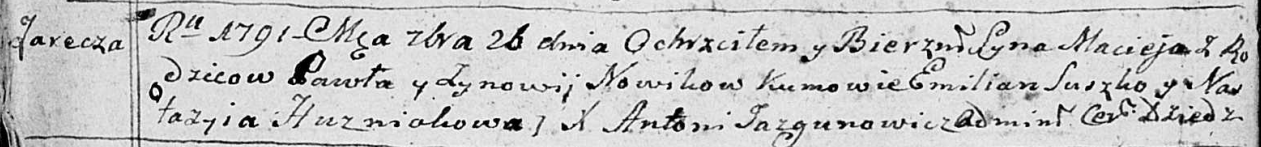 Zarecza
Ru 1791 Mca 7bra 26 dnia Ochrzciłem y Bierzm Syna Macieja Z Ro
dzicow Pawła y Zynowij Nowikow Kumowie Emilian Suszko y Nas
tazyia Huzniakowa X Antoni Jazgunowicz Admin Cer Dziedz